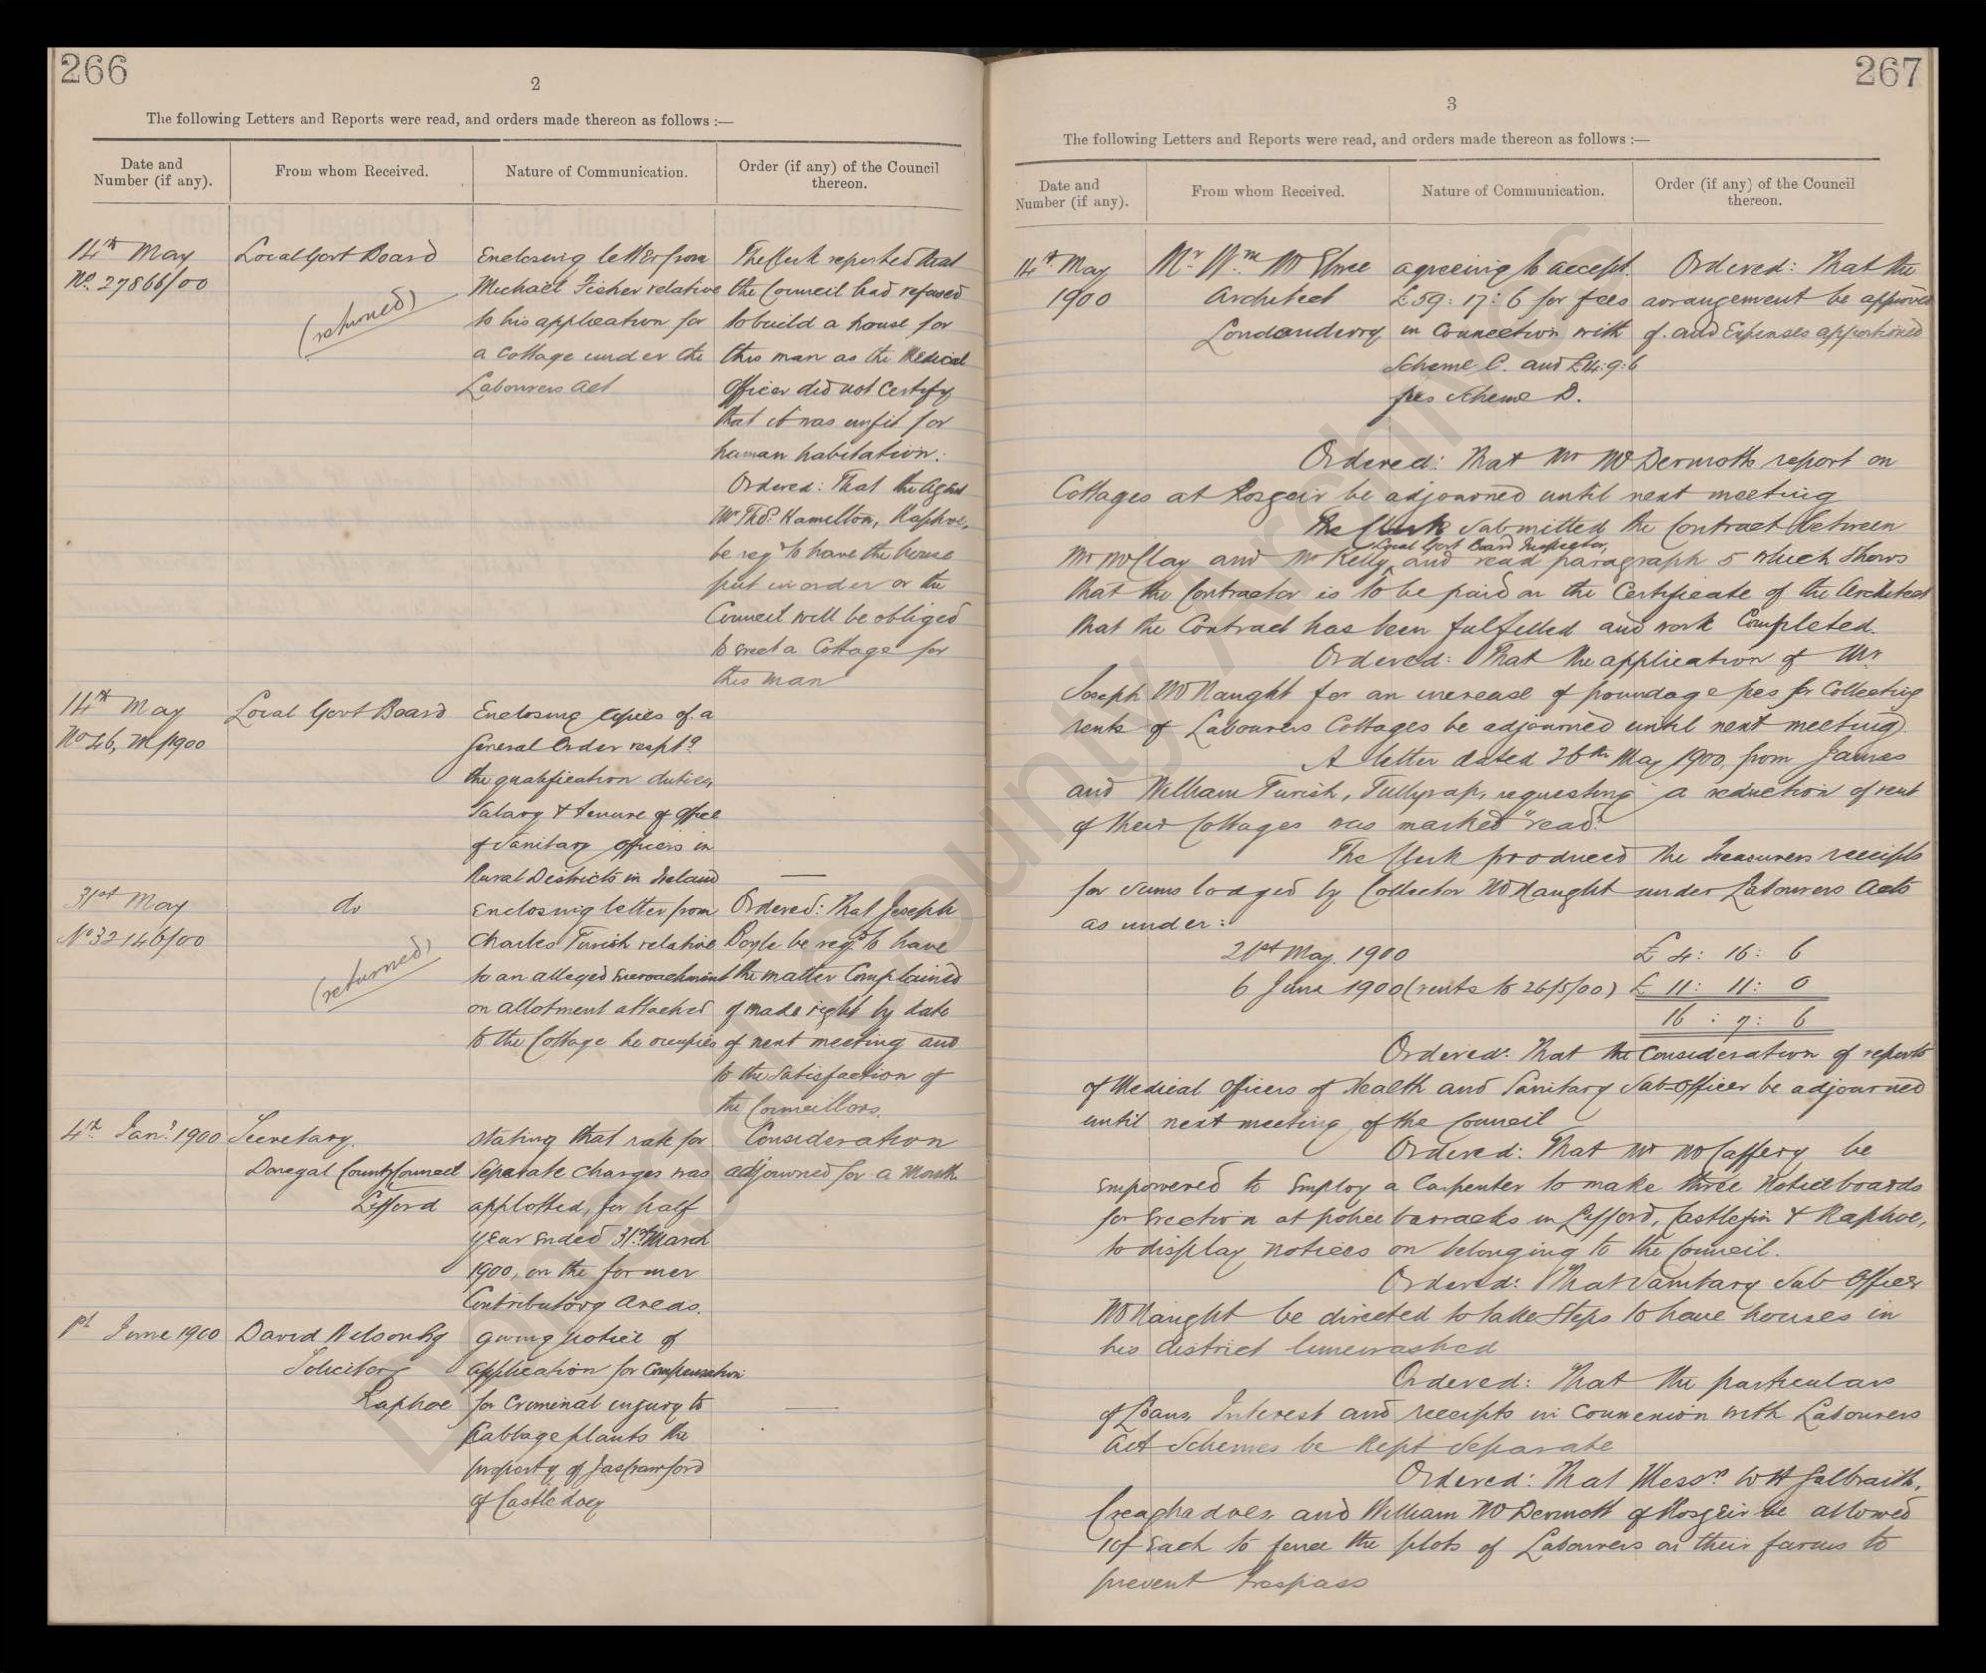 266
2
The following Letters and Reports were read, and orders made thereon as follows :—
Date and Number (if any).
From whom Received.
Nature of Communication.
Order (if any) of the Council thereon.
14th May
No. 27866/00
Local Govt Board
(returned)
Enclosing letter from
Michael Fisher relative
to his application for
a Cottage under the
Labourers Act
The Clerk reported that
the Council had refused
to build a house for
this man as the Medical
Officer did not certify
that it was unfit for
human habitation.
Ordered: That the Agent
Mr Thos. Hamilton, Raphoe,
be reqd to have the house
put in order or the
Council will be obliged
to erect a Cottage for
this man
14th May
No 46, M/1900
Local Govt Board
Enclosing copies of a
General Order respt.g
the qualification duties,
Salary & tenure of office
of Sanitary Officers in
Rural Districts in Ireland
—
31st May
No 32146/00
do
(returned)
Enclosing letter from
Charles Turish relative
to an alleged Encroachment
on allotment attached
to the Cottage he occupies
Ordered: That Joseph
Boyle be reqd to have
the matter Complained
of made right by date
of next meeting and
to the Satisfaction of
the Councillors.
4th Jany 1900
Secretary
Donegal County Council
Lifford
Stating that rate for
Separate Charges was
applotted, for half
year ended 31st March
1900, on the former
Contributory Areas.
Consideration
adjourned for a Month
1st June 1900
David Wilson Esq
Solicitor
Raphoe
giving notice of
application for Compensation
for Criminal injury to
Cabbage plants the
property of Jas Crawford
of Castledoey
—
267
3
The following Letters and Reports were read, and orders made thereon as follows :—
Date and Number (if any).
From whom Received.
Nature of Communication.
Order (if any) of the Council thereon.
14th May
1900
Mr Wm McElwee
Architect
Londonderry
agreeing to accept
£59:17:6 for fees
in Connection with
Scheme C. and £14:9:6
fees Scheme D.
Ordered: That the
arrangement be approved
of and Expenses apportioned
Ordered: That Mr McDermotts report on
Cottages at Rosgeir be adjourned until next meeting
The Clerk submitted the Contract between
Local Govt Board Inspector,
Mr McClay and Mr Kelly and read paragraph 5 which shows
that the Contractor is to be paid on the Certificate of the Architect
that the Contract has been fulfilled and work Completed.
Ordered: That the application of Mr
Joseph McNaught for an increase of poundage fees for Collecting
rents of Labourers Cottages be adjourned until next meeting.
A letter dated 26th May 1900, from James
and William Turish, Tullyrap, requesting a reduction of rent
of their Cottages was marked "read".
The Clerk produced the Treasurers receipts
for sums lodged by Collector McNaught under Labourers Acts
as under:
21st May 1900 £ 4: 16: 6
6 June 1900 (rents to 26/5/00) £ 11: 11: 0
16 : 7 : 6
Ordered: That the Consideration of reports
of Medical Officers of Health and Sanitary Sub-Officer be adjourned
until next meeting of the Council
Ordered: That Mr McCaffery be
Empowered to Employ a Carpenter to make three Notice boards
for Erection at police barracks in Lifford, Castlefin & Raphoe,
to display notices on belonging to the Council.
Ordered: That Sanitary Sub Officer
McNaught be directed to take steps to have houses in
his district limewashed
Ordered: That the particulars
of Loans, Interest and receipts in Connexion with Labourers
Act Schemes be kept Separate
Ordered: That Messrs W H Galbraith,
Creaghadoes, and William McDermott of Rosgeir be allowed
10/- Each to fence the plots of Labourers on their farms to
prevent trespass
Donegal County Archives